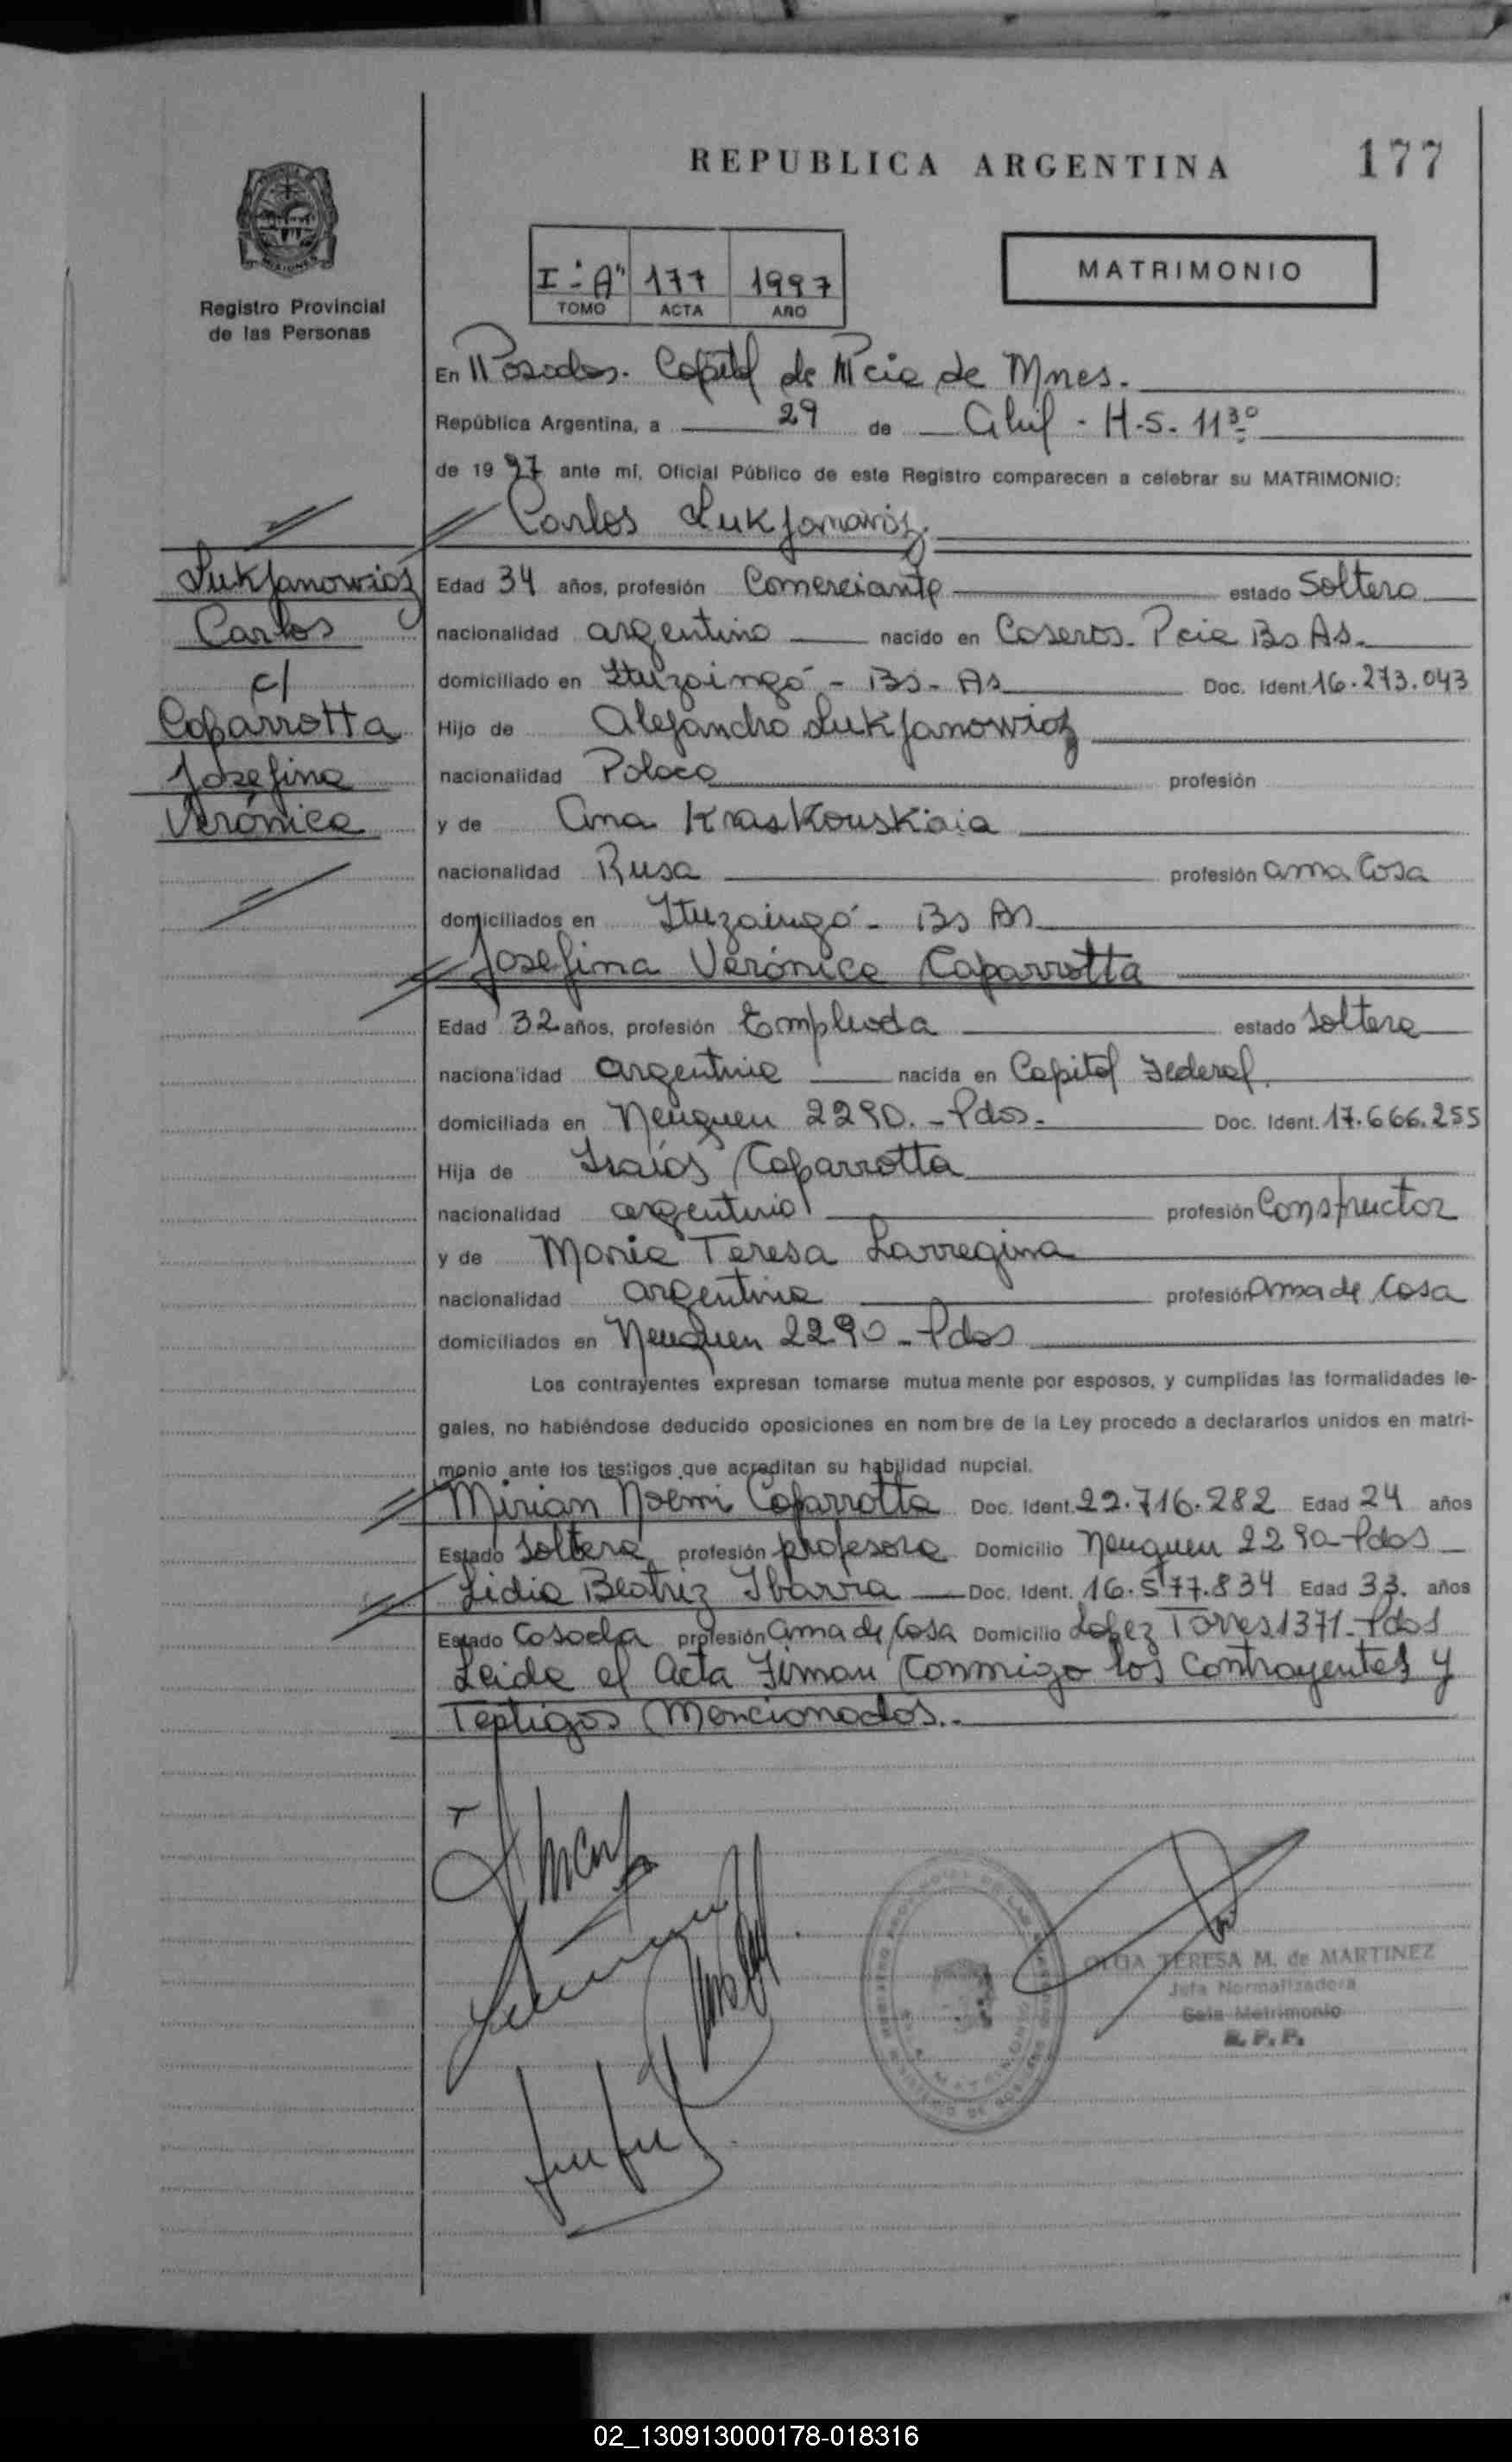 REPUBLICA ARGENTINA
177
Registro Provincial
de las Personas
I-"A" 177 1997
TOMO ACTA AÑO
MATRIMONIO
En Posadas. Capital de Pcia de Mnes.
República Argentina, a 29 de Abril - H.S. 11 30
de 1997 ante mí, Oficial Público de este Registro comparecen a celebrar su MATRIMONIO:
Carlos Lukjanowicz
Lukjanowicz
Carlos
c/
Caparrotta
Josefina
Verónica
Edad 34 años, profesión Comerciante estado Soltero
nacionalidad argentino nacido en Caseros. Pcia Bs As.
domiciliado en Ituzaingó - Bs- As Doc. Ident. 16.273.043
Hijo de Alejandro Lukjanowicz
nacionalidad Polaca profesión
y de Ana Kraskouskaia
nacionalidad Rusa profesión ama Casa
domiciliados en Ituzaingó - Bs As
Josefina Verónica Caparrotta
Edad 32 años, profesión Empleada estado Soltera
nacionalidad argentina nacida en Capital Federal.
domiciliada en Neuquen 2290.- Pdas. Doc. Ident. 17.666.255
Hija de Isaías Caparrotta
nacionalidad argentino profesión Constructor
y de María Teresa Larregina
nacionalidad argentina profesión Ama de Casa
domiciliados en Neuquen 2290 - Pdas
Los contrayentes expresan tomarse mutua mente por esposos, y cumplidas las formalidades le-
gales, no habiéndose deducido oposiciones en nom bre de la Ley procedo a declararlos unidos en matri-
monio ante los testigos que acreditan su habilidad nupcial.
Mirian Noemi Caparrotta Doc. Ident. 22.716.282 Edad 24 años
Estado Soltera profesión profesora Domicilio Neuquen 2290-Pdas
Lidia Beatriz Ibarra Doc. Ident. 16.577.834 Edad 33. años
Estado Casada profesión ama de Casa Domicilio López Torres 1371-Pdas
Leida el Acta Firman Conmigo los Contrayentes y
Testigos Mencionados.-
OLGA TERESA M. de MARTINEZ
Jefa Normalizadora
Sala Matrimonio
R. P. P.
02_130913000178-018316